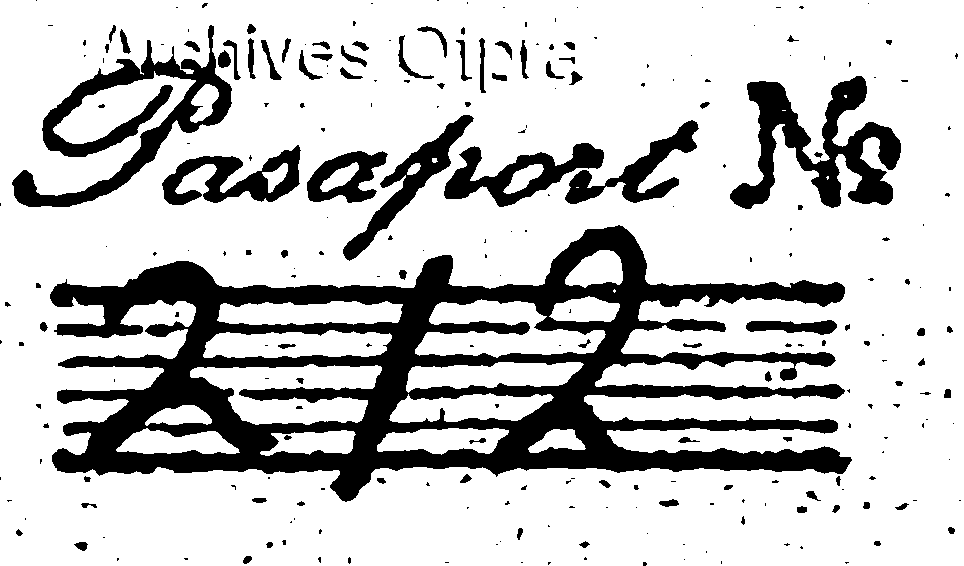 Archives Oipra
Pasaport №
212